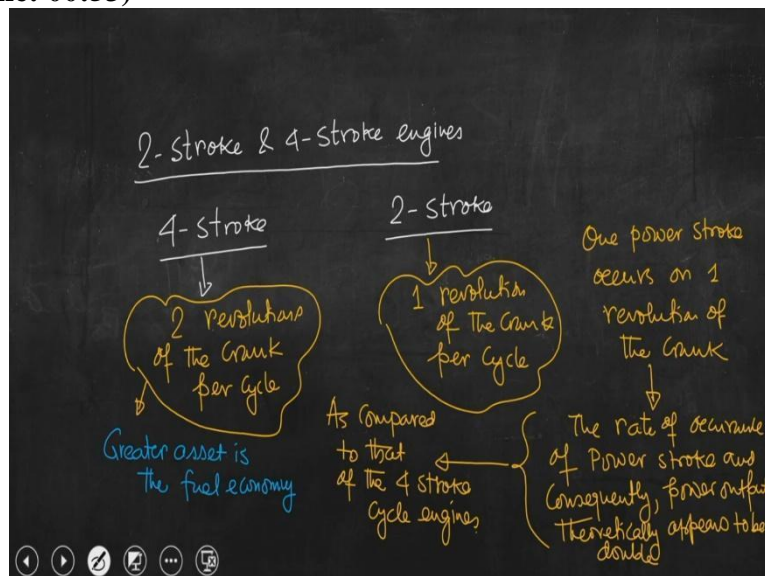 2-stroke & 4-stroke engines
4-stroke
2 revolutions
of the crank
per cycle
Greater asset is
the fuel economy
2-stroke
1 revolution
of the crank
per cycle
One power stroke
occurs on 1
revolution of
the crank
The rate of occurance
of Power stroke and
Consequently, power output
Theoretically appears to be
double
As compared
to that
of the 4 stroke
cycle engines